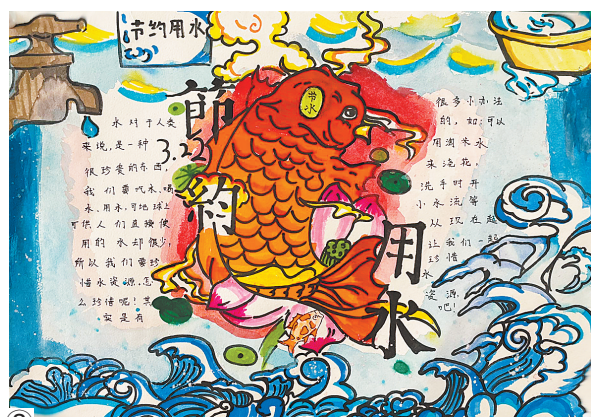 节约用水
節約
用水
节水
3.22
水对于人类
来说,是一种
很珍贵的东西,
我们要吃水、喝
水、用水,可地球上
可供人们直接使
用的水却很少,
所以我们要珍
惜水资源,怎
么珍惜呢!其
实是有
很多小办法
的,如:可以
用淘米水
来浇花,
洗手时开
小水流等
从现在起
让我们一起
珍惜
水
资源
吧!